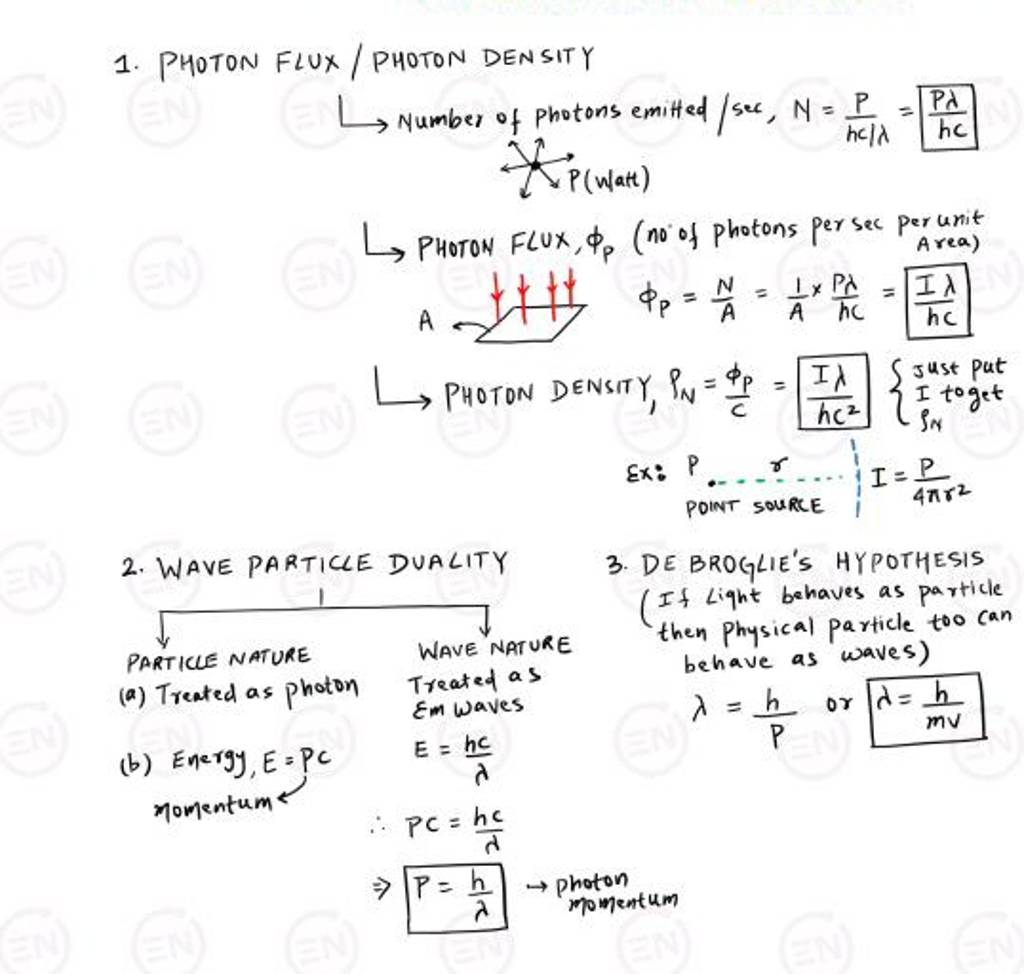 1. PHOTON FLUX / PHOTON DENSITY
Number of photons emitted /sec, N = P / hc/λ = Pλ / hc
P(Watt)
PHOTON FLUX, ϕp (no of photons per sec per unit Area)
A
ϕp = N/A = 1/A × Pλ/hc = Iλ/hc
PHOTON DENSITY, ρN = ϕp/C = Iλ/hc²
{ Just put
I to get
ρN
Ex: P r I = P/4πr²
POINT SOURCE
2. WAVE PARTICLE DUALITY
PARTICLE NATURE
(a) Treated as photon
(b) Energy, E = PC
momentum
WAVE NATURE
Treated as
Em waves
E = hc/λ
∴ PC = hc/λ
⇒ P = h/λ → photon
momentum
3. DE BROGLIE'S HYPOTHESIS
(If Light behaves as particle
then physical particle too can
behave as waves)
λ = h/P or λ = h/mv
EN